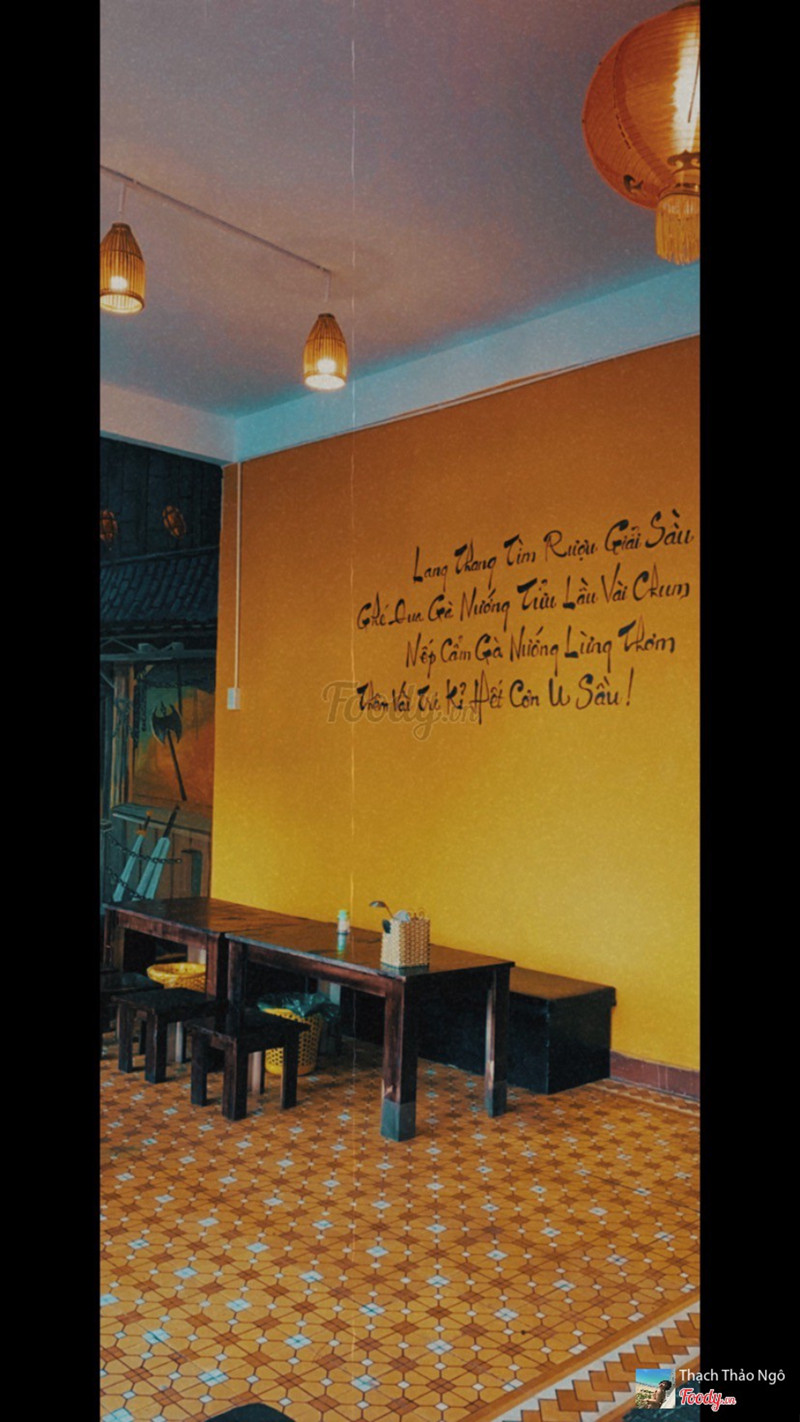 Lang Thang Tìm Rượu Giải Sầu
Ghé Qua Gà Nướng Tửu Lầu Vài Chum
Nếp Cẩm Gà Nướng Lừng Thơm
Thêm Vài Tri Kỉ Hết Cơn U Sầu!
Foody.vn
Thạch Thảo Ngô
Foody.vn